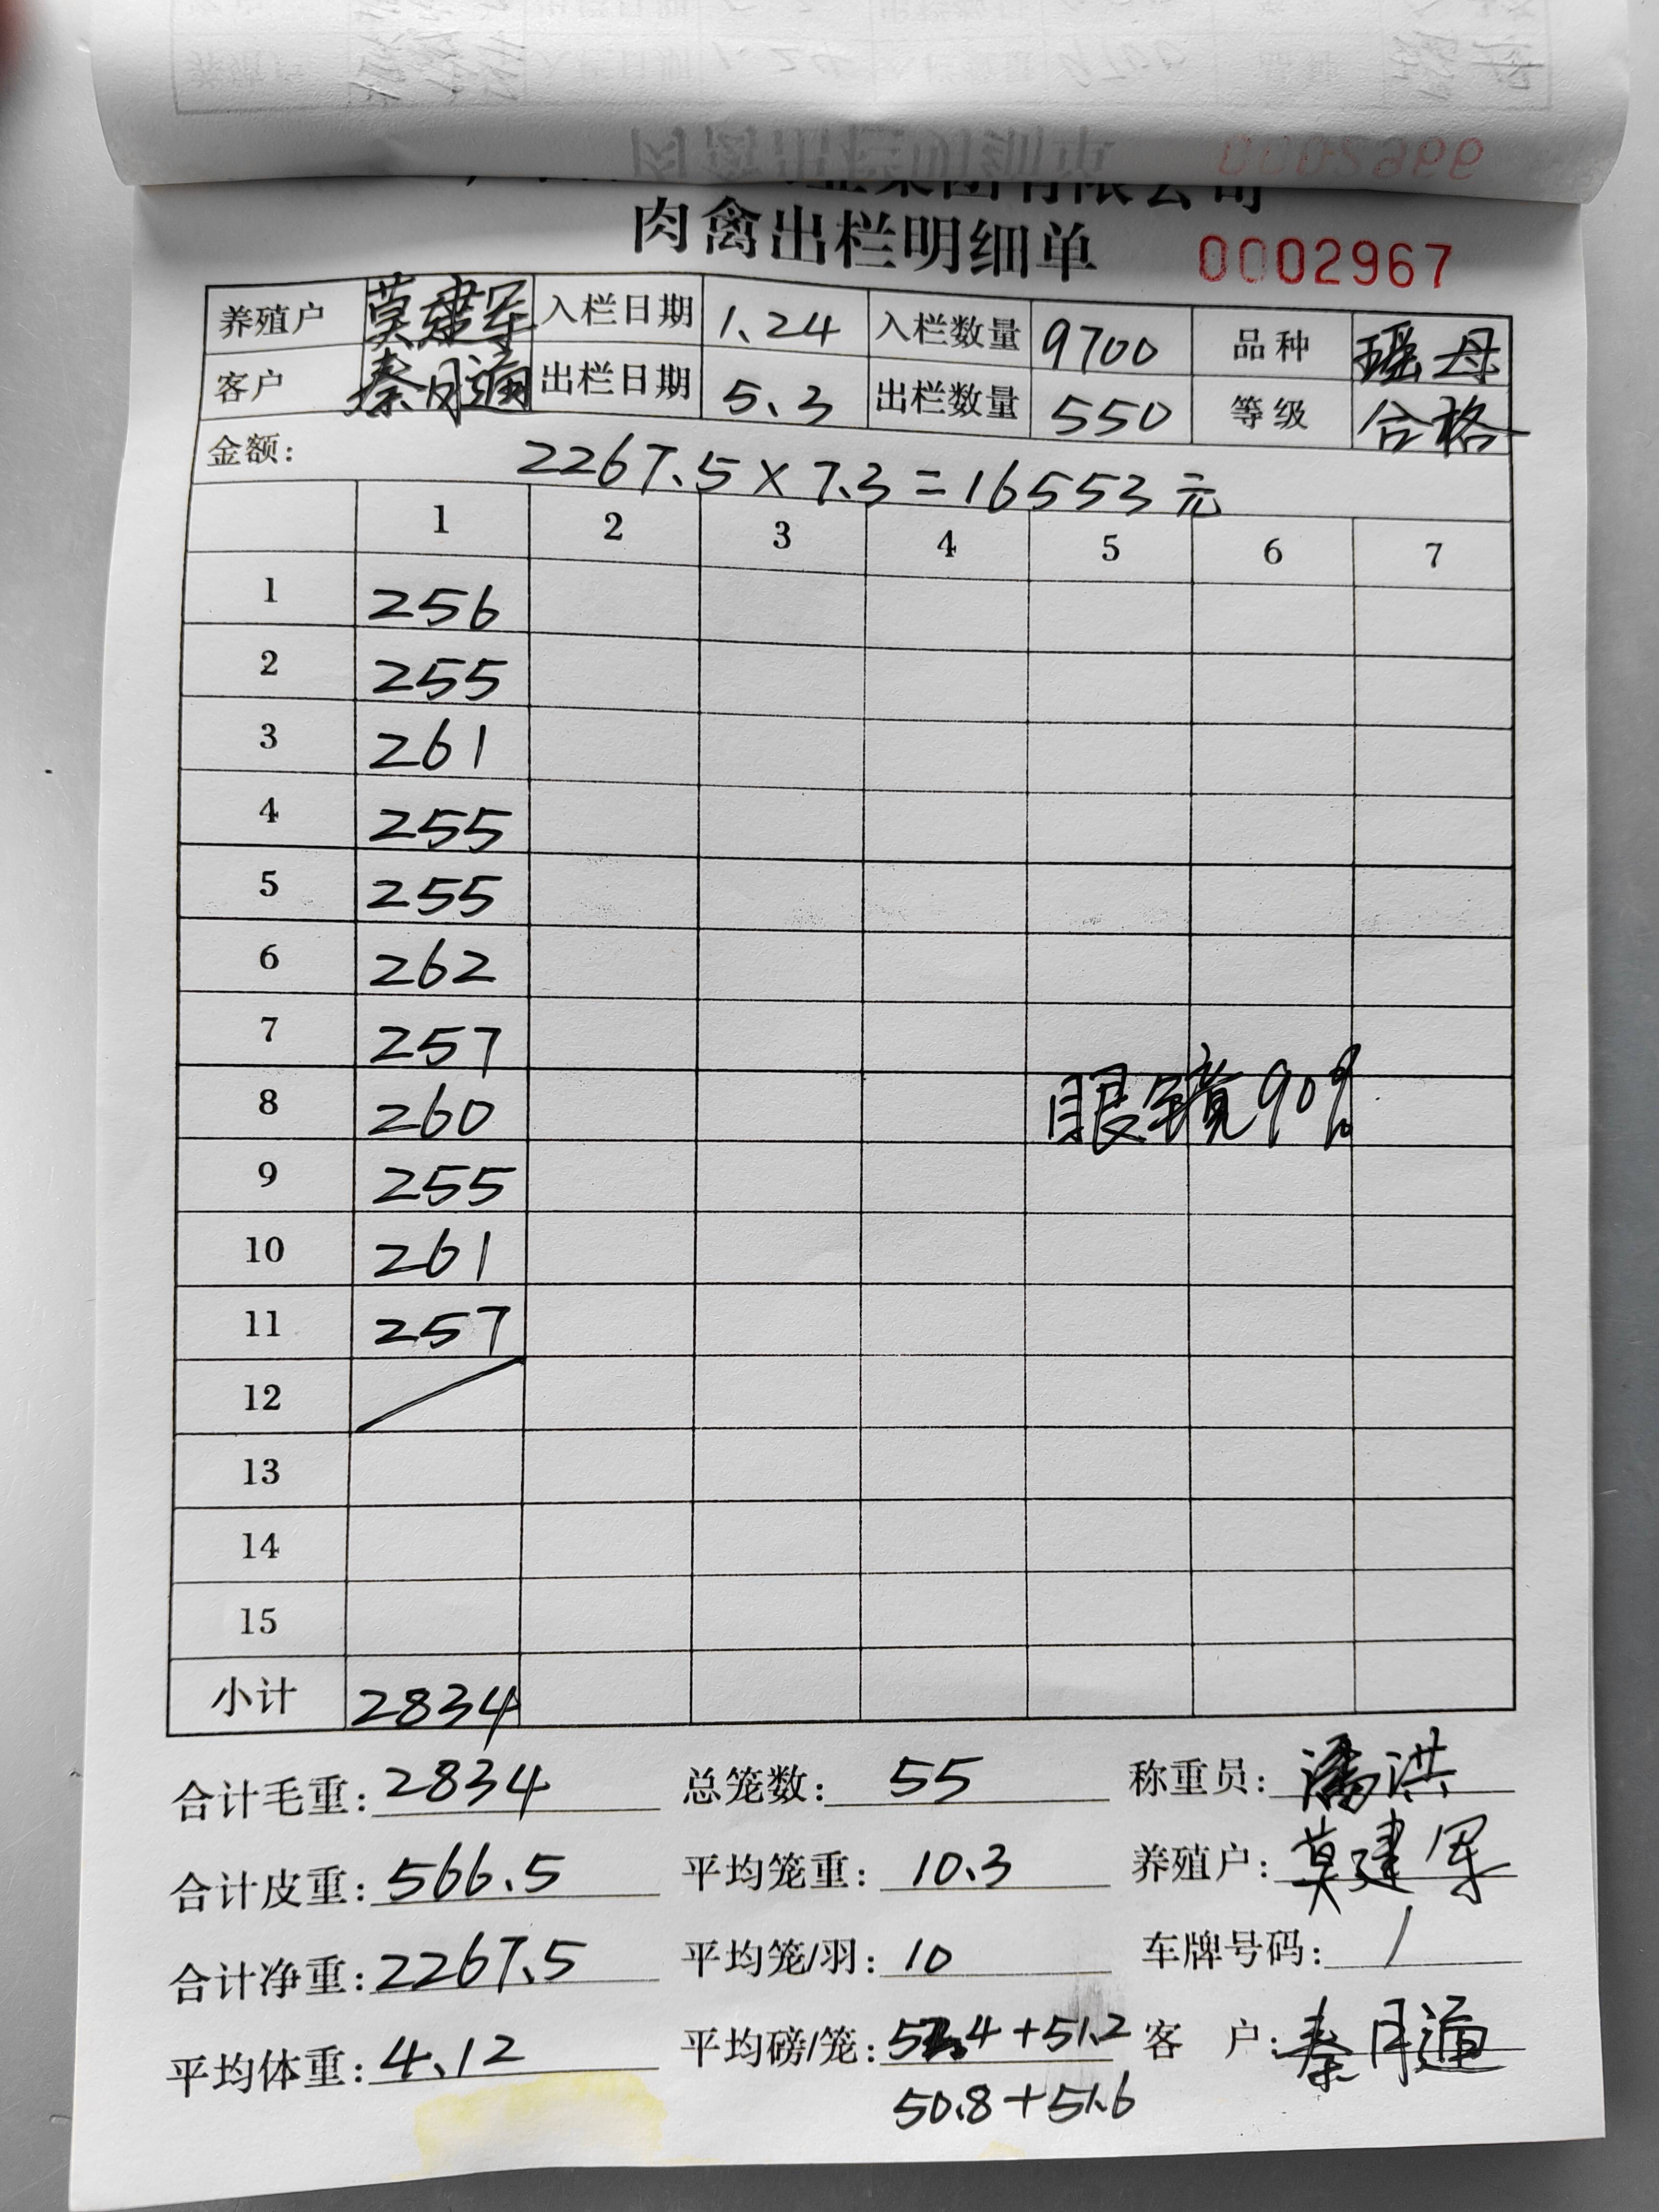 集团有限公司
肉禽出栏明细单 0002967
养殖户 莫建军 入栏日期 1.24 入栏数量 9700 品种 瑶母
客户 秦月通 出栏日期 5.3 出栏数量 550 等级 合格
金额: 2267.5×7.3=16553元
1 2 3 4 5 6 7
1 256
2 255
3 261
4 255
5 255
6 262
7 257
8 260 眼镜90%
9 255
10 261
11 257
12
13
14
15
小计 2834
合计毛重: 2834 总笼数: 55 称重员: 潘洪
合计皮重: 566.5 平均笼重: 10.3 养殖户: 莫建军
合计净重: 2267.5 平均笼/羽: 10 车牌号码: /
平均体重: 4.12 平均磅/笼: .4+51.2 客户: 秦月通
50.8+51.6